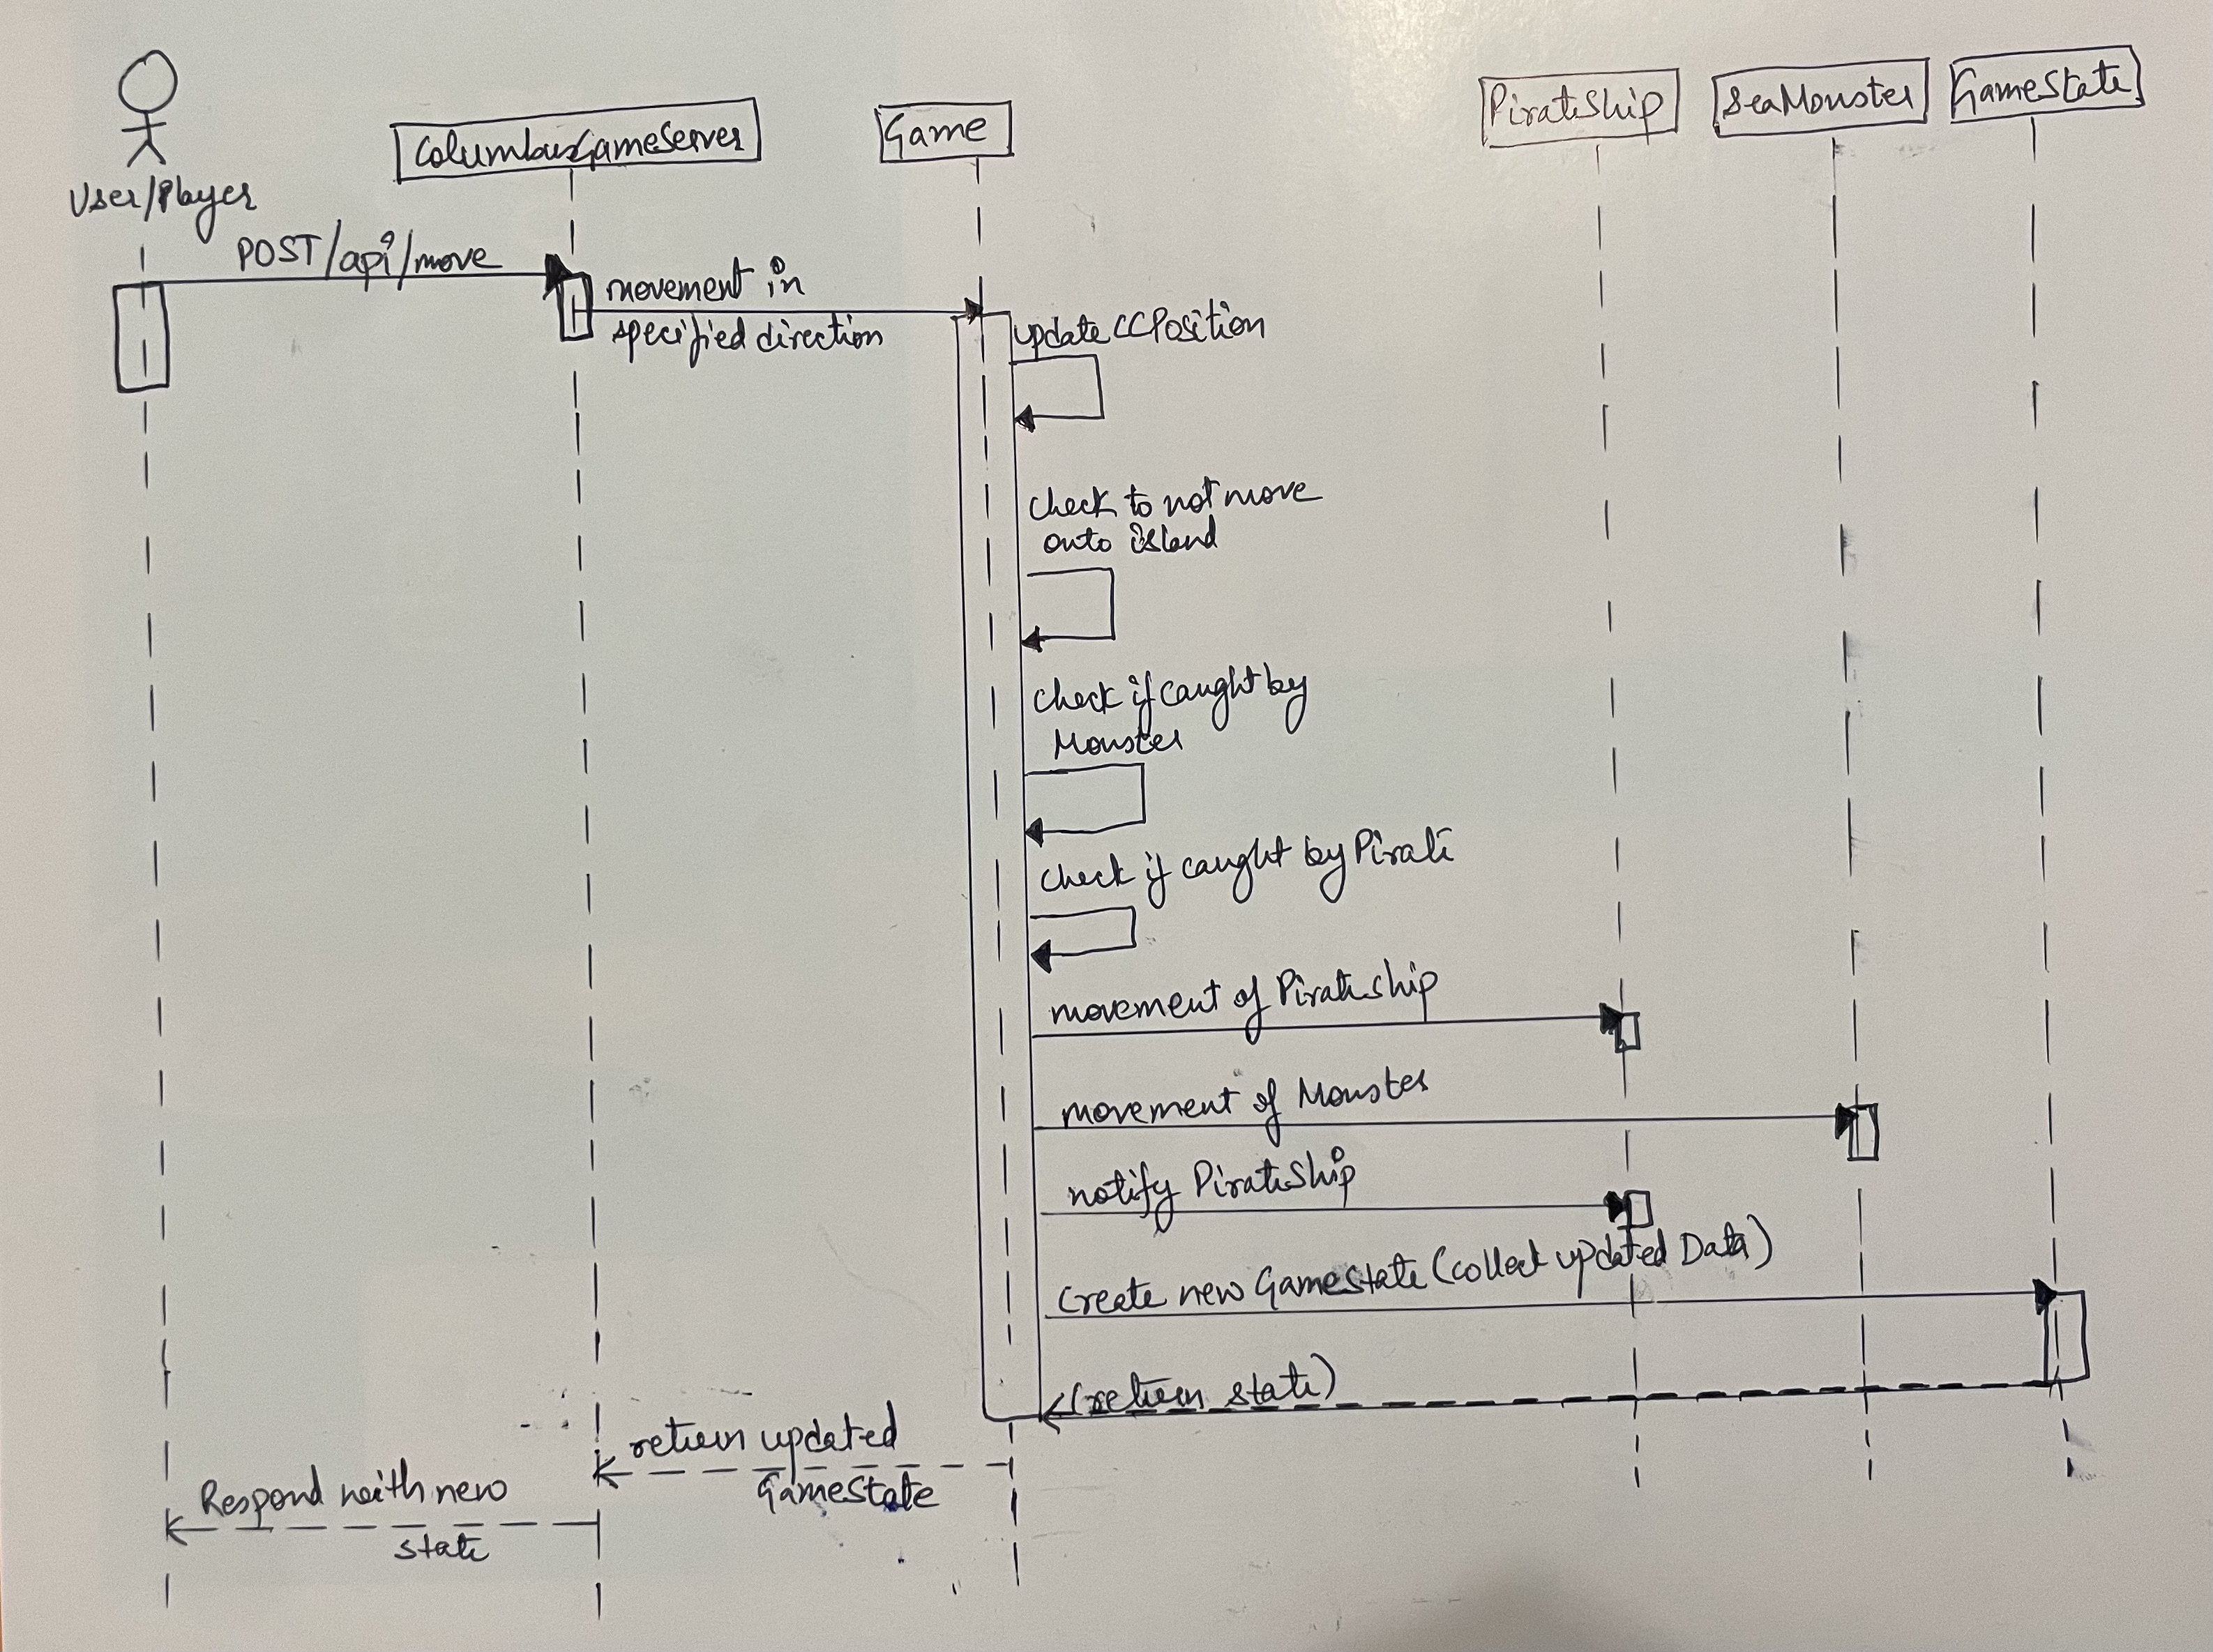 User/Player
ColumbusGameServer
Game
PirateShip
SeaMonster
GameState
POST/api/move
movement in
specified direction
updateCCPosition
check to not move
onto island
check if caught by
Monster
check if caught by Pirate
movement of Pirateship
movement of Monster
notify PirateShip
Create new GameState (collect updated Data)
(return state)
return updated
GameState
Respond with new
state